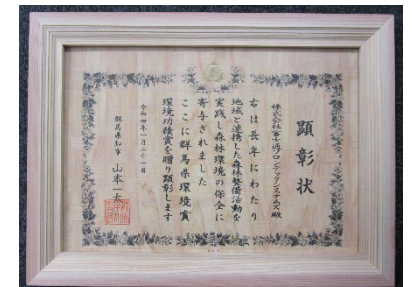 顕彰状
株式会社富士通フロンテックシステムズ殿
右は長年にわたり
地域と連携した森林整備活動を
実践し森林環境の保全に
寄与されました
ここに群馬県環境賞
環境功績賞を贈り顕彰します
令和四年一月二十一日
群馬県知事 山本一太